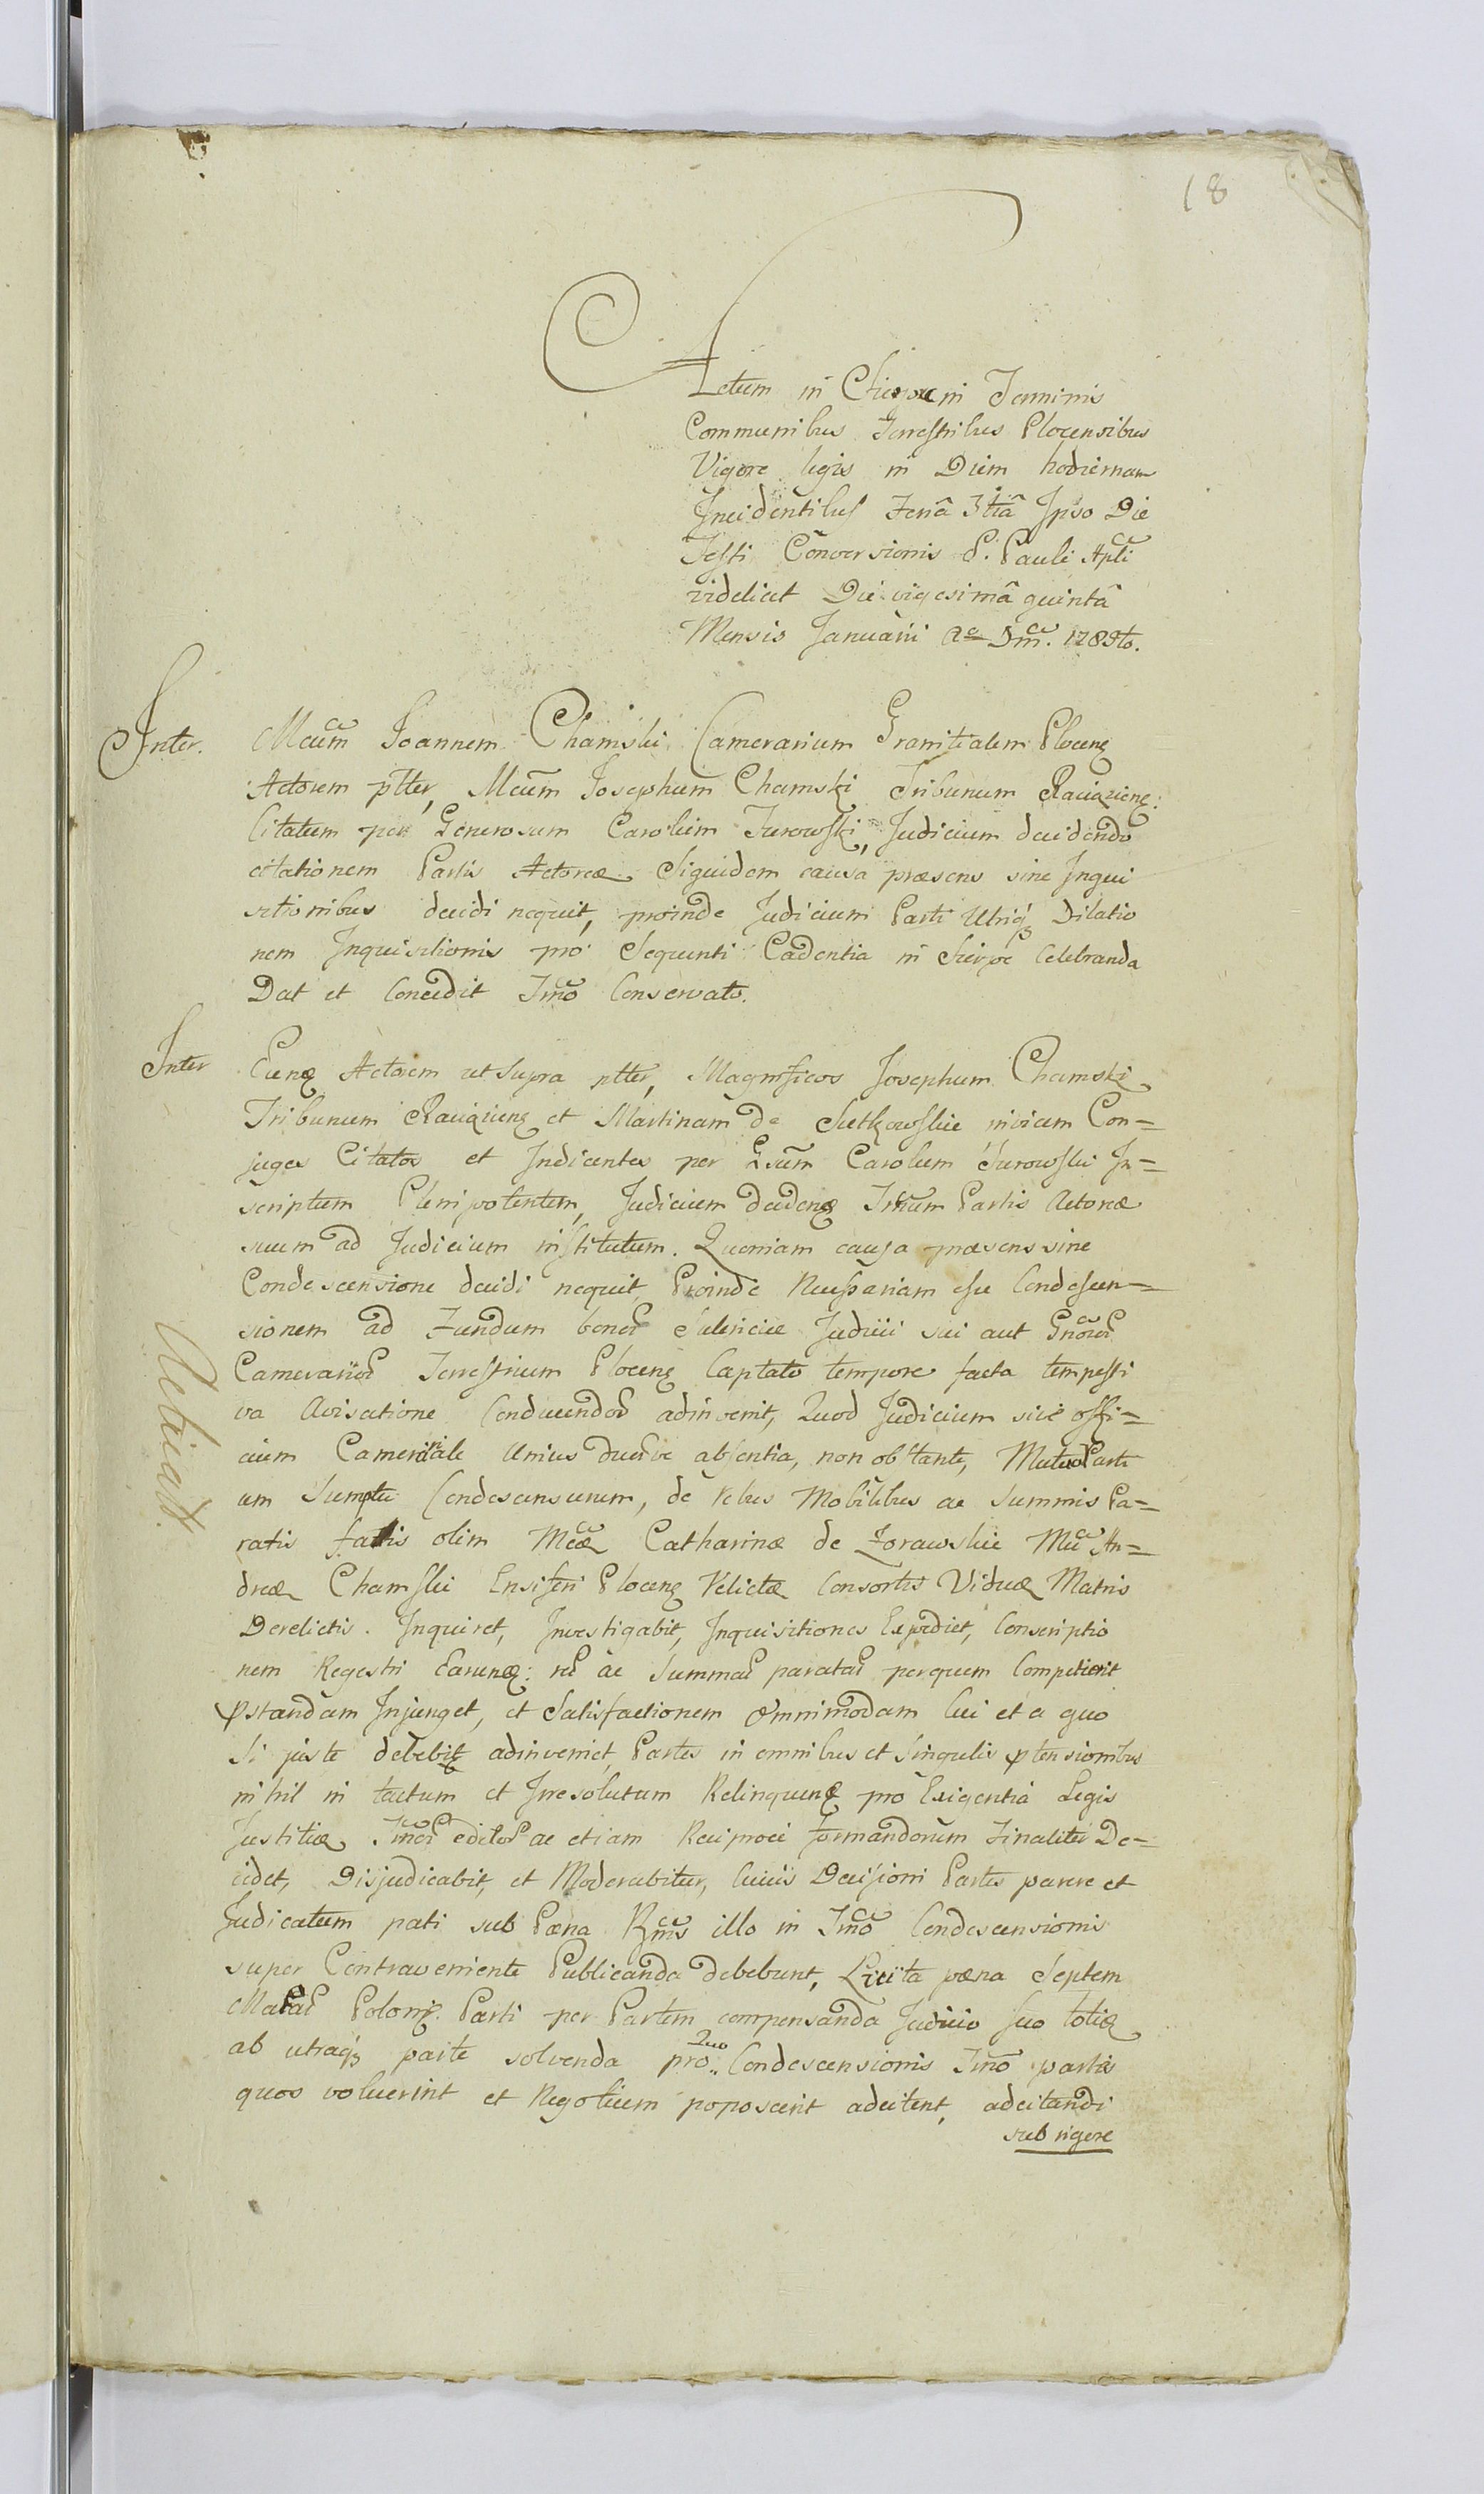 18
Actum in Sierpc in Terminis
Communibus Terrestribus Plocensibus
Vigore legis in Diem hodiernam
Incidentibus Feriâ 3tiâ Ipso Die
Festi Conversionis S. Pauli Apli
videlicet Die vigesimâ quintâ
Mensis Januarii Ao Dm. 178
Inter. Mcum Joannem Chamski Camerarium Granitialem Plocens
Actorem ptter, Mcum Josephum Chamski Tribunum Raciąziens:
Citatum per Generosum Carolum Turowski, Judicium decidendo
citationem Partis Actoreæ. Siquidem causa præsens sine Inqui
sitionibus decidi nequit, proinde Judicium Parti Utriq Dilatio
nem Inquisitionis pro Sequenti Cadentia in Sierpc Celebranda
Dat et Concedit Tmo Conservato.
Inter Eund Actorem ut supra ptter, Magnificos Josephum Chamski
Tribunum Raciąziens et Martinam de Sutkowskie invicem Con=
juges Citatos et Indicentes per Gsum Carolum Turowski In=
scriptum Plenipotentem, Judicium decidend Tmum Partis Actoreæ
suum ad Judicium institutum. Quoniam causa præsens sine
Condescensione decidi nequit, Proinde Necessariam esse Condescen=
sionem ad Fundum bonor Judicii sui aut Gnoror
Camerarior Terrestrium Plocens Captato tempore facta tempesti
va Avisatione Conducendor adinvenit, Quod Judicium sive offi=
cium Camerariale Unius duorve absentia, non obstante, Mutuo Parti
um Sumptu Condescensurum, de rebus Mobilibus ac Summis Pa=
ratis factis olim Mcæ Catharinæ de Zorawskie Mci An=
dreæ Chamski Ensiferi Plocens Relictæ Consortis Viduæ Matris
Derelictis. Inquiret, Investigabit, Inquisitiones Expediet, Conscriptio
nem Regestri Earund: rer ac Summar paratar perquem Competierit
pstandam Injunget, et Satisfactionem omnimodam Cui et a quo
Si juste debebit adinveniet, Partes in omnibus et Singulis ptensionibus
nihil in tactum et Irresolutum Relinquens pro Exigentia Legis
Justitiæ Tmor editor ac etiam Reciproci formandorum Finaliter De=
cidet, Disjudicabit, et Moderabitur, Cuius Decisioni Partes parere et
Judicatum pati sub Pæna Bnis illo in Tmo Condescensionis
super Contraveniente Publicanda debebunt, Licita pæna Septem
Marcar Polon. Parti per Partem compensanda Judicio suo toties
ab utraq parte solvenda pro Quo Condescensionis Tmo partes
quos voluerint et Negotium poposcerit adcitent, adcitandi
sub rigore